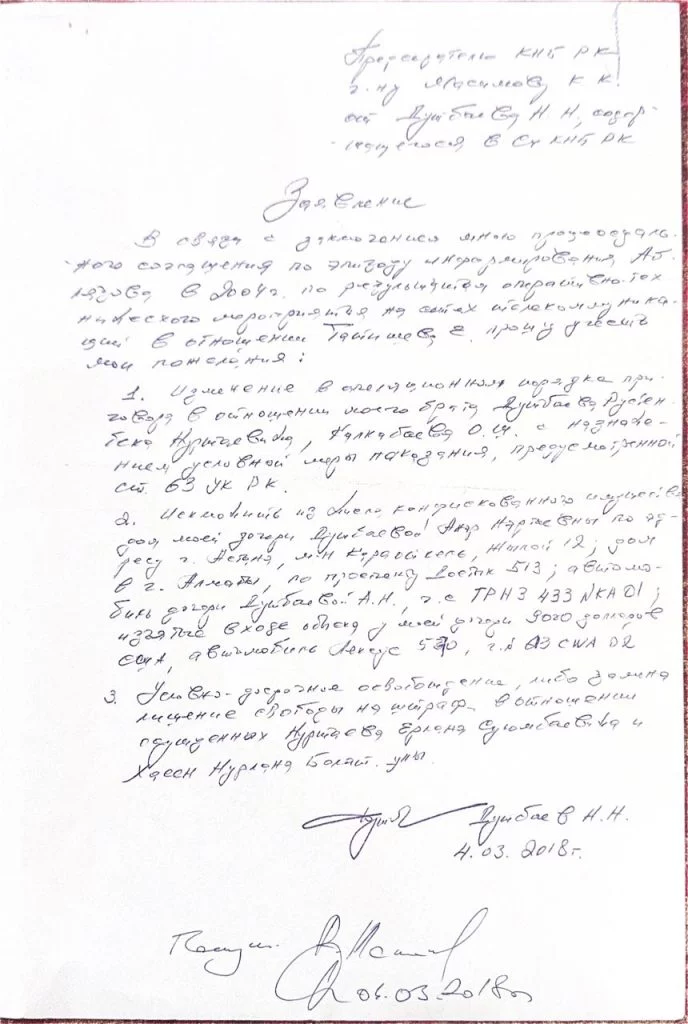 Председателю КНБ РК
г-ну Масимову К. К.
от Дутбаева Н. Н., содер-
жащегося в СИ КНБ РК
Заявление
В связи с заключением мною процессуаль-
ного соглашения по эпизоду информирования Аб-
лязова в 2004г. по результатам оперативно-тех
нического мероприятия на сетях телекоммуника
ций в отношении Татишева Е. прошу учесть
мои пожелания:
1. Изменение в апелляционном порядке при-
говора в отношении моего брата Дутбаева Рустен-
бека Нуртаевича, Калкабаева О. с назначе-
нием условной меры наказания, предусмотренной
ст. 63 УК РК.
2. Исключить из числа конфискованного имущества
дом моей дочери Дутбаевой Анар Нартаевны по ад-
ресу г. Астана, м-н Караоткель, Жылой 12; дом
в г. Алматы, по проспекту Достык 513; автомо-
биль дочери Дутбаевой А.Н., г.н 433 NKA 01;
изъятые в ходе обыска у моей дочери долларов
США, автомобиль Лексус 570, г.н CWA 02
3. Условно-досрочное освобождение, либо замена
лишение свободы на штраф в отношении
осужденных Нуртаева Ерлана Суюмбаевича и
Хасен Нурлана Болат. улы.
Дутбаев Н.Н.
4.03.2018г.
04.03.2018г